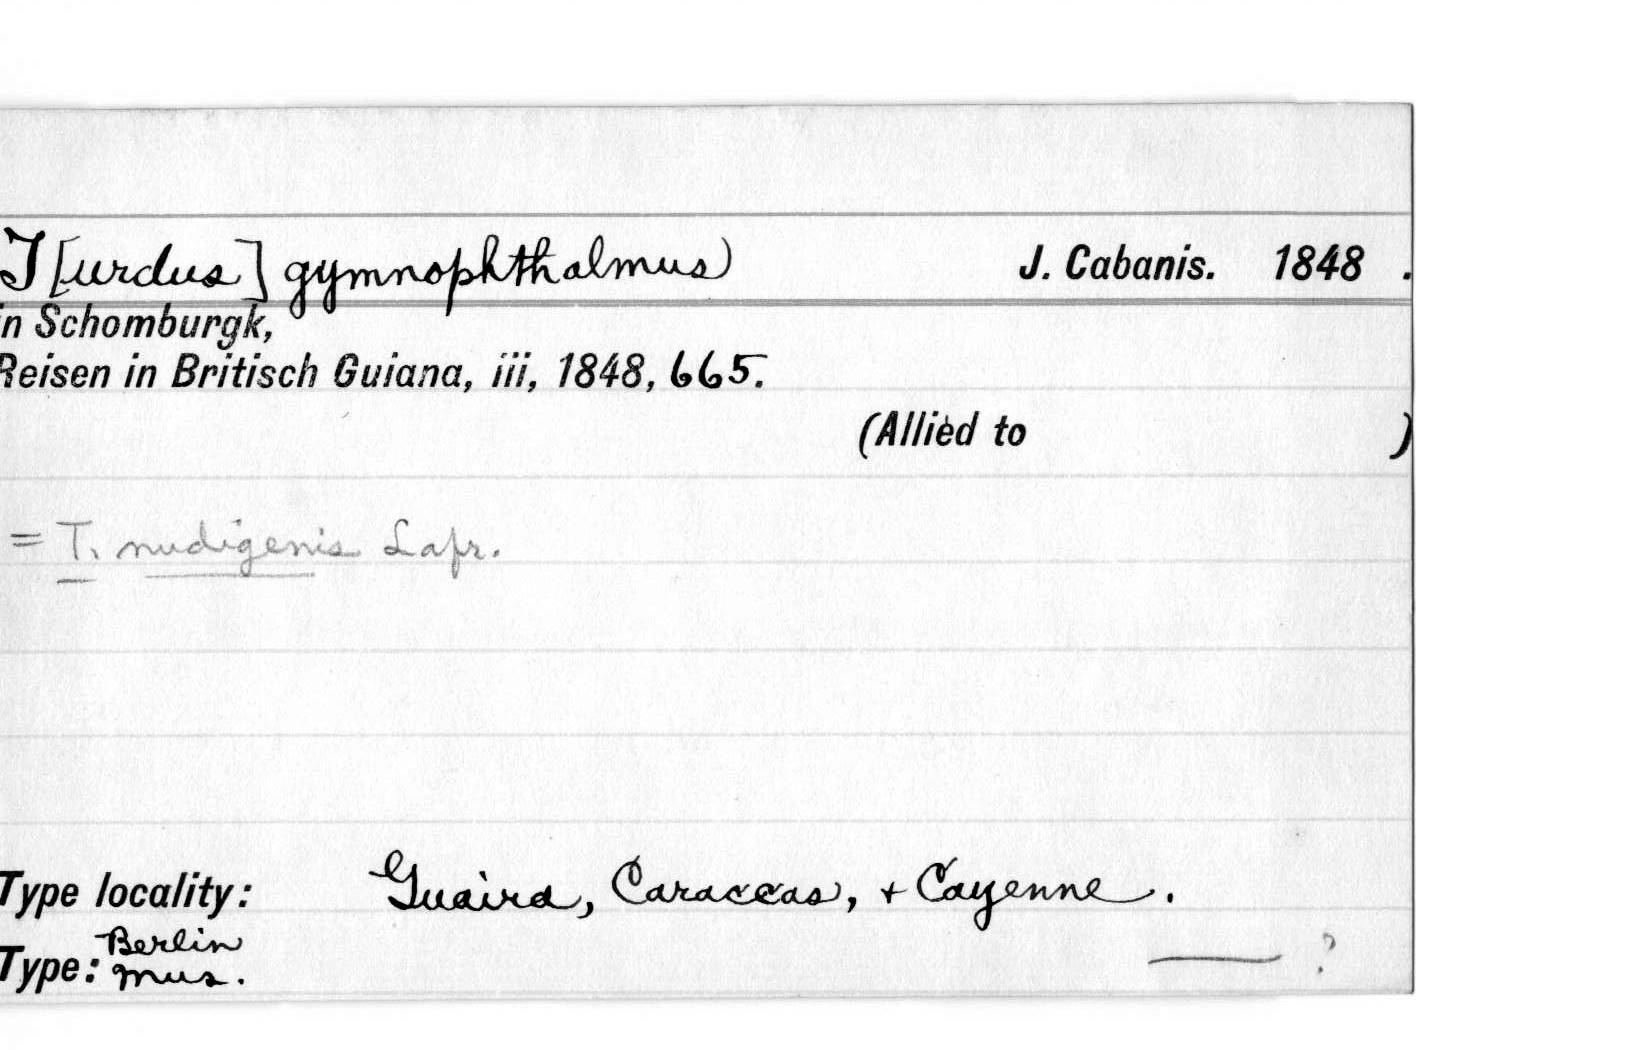 T[urdus] gymnophthalmus J. Cabanis. 1848 .
in Schomburgk,
Reisen in Britisch Guiana, iii, 1848, 665.
(Allied to )
= T. nudigenis Lafr.
Type locality: Guaira, Caraccas, + Cayenne.
Type: Berlin
Mus. — ?